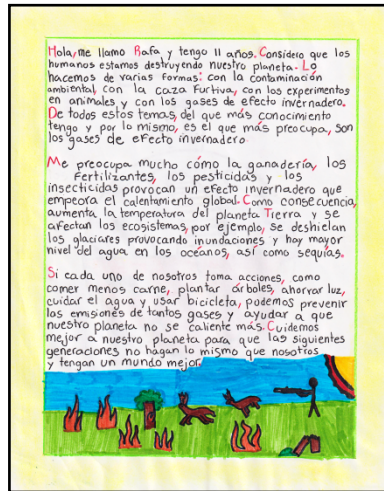 Hola, me llamo Rafa y tengo 11 años. Considero que los
humanos estamos destruyendo nuestro planeta. Lo
hacemos de varias formas: con la contaminación
ambiental, con la caza furtiva, con los experimentos
en animales y con los gases de efecto invernadero.
De todos estos temas, del que más conocimiento
tengo y por lo mismo, es el que más preocupa, son
los gases de efecto invernadero
Me preocupa mucho cómo la ganadería, los
fertilizantes, los pesticidas y los
insecticidas provocan un efecto invernadero que
empeora el calentamiento global. Como consecuencia,
aumenta la temperatura del planeta Tierra y se
afectan los ecosistemas, por ejemplo, se deshielan
los glaciares provocando inundaciones y hay mayor
nivel del agua en los océanos, así como sequías.
Si cada uno de nosotros toma acciones, como
comer menos carne, plantar árboles, ahorrar luz,
cuidar el agua y usar bicicleta, podemos prevenir
los emisiones de tantos gases y ayudar a que
nuestro planeta no se caliente más. Cuidemos
mejor a nuestro planeta para que las siguientes
generaciones no hagan lo mismo que nosotros
y tengan un mundo mejor.